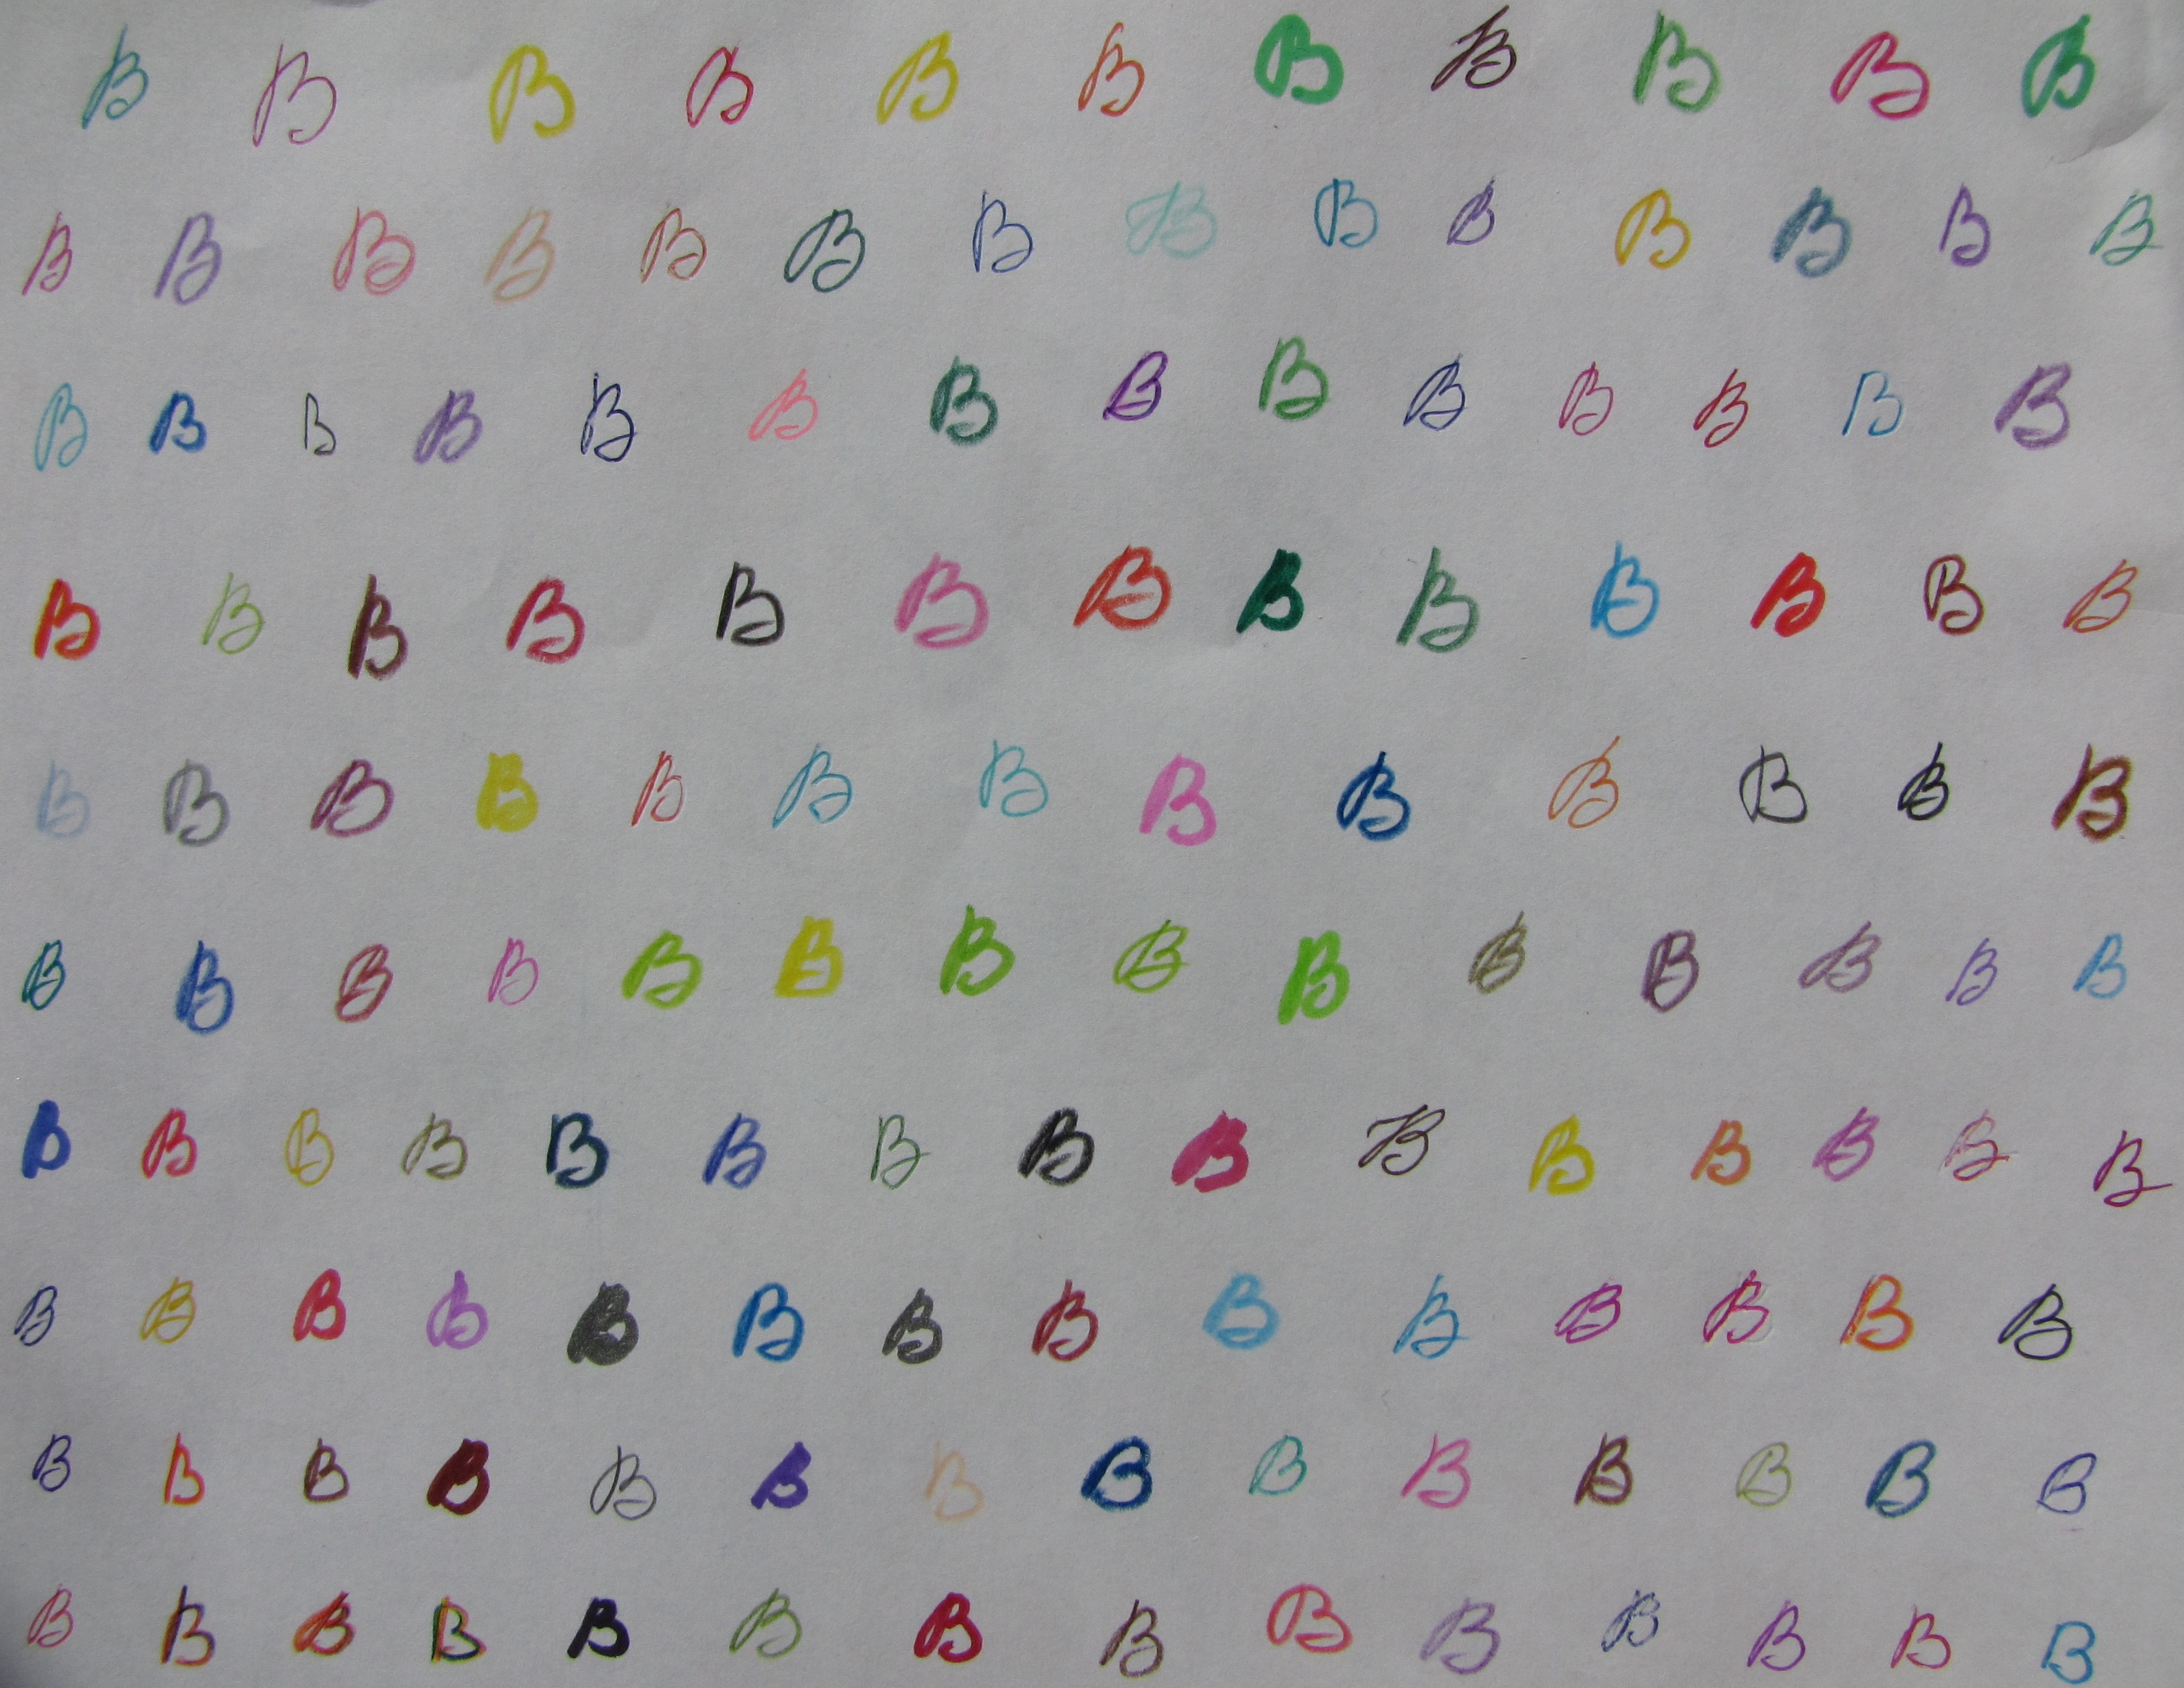 B B B B B B B B B B B
B B B B B B B B B B B B B B
B B B B B B B B B B B B B B
B B B B B B B B B B B B B
B B B B B B B B B B B B B
B B B B B B B B B B B B B B
B B B B B B B B B B B B B B B
B B B B B B B B B B B B B B
B B B B B B B B B B B B B B
B B B B B B B B B B B B B B